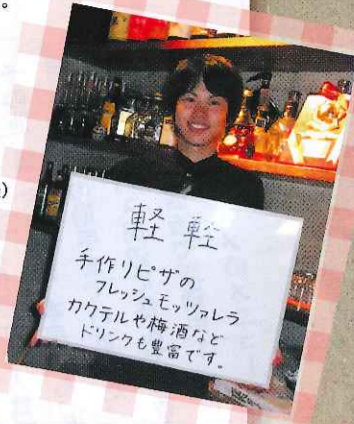 軽軽
手作りピザの
フレッシュモッツァレラ
カクテルや梅酒など
ドリンクも豊富です。